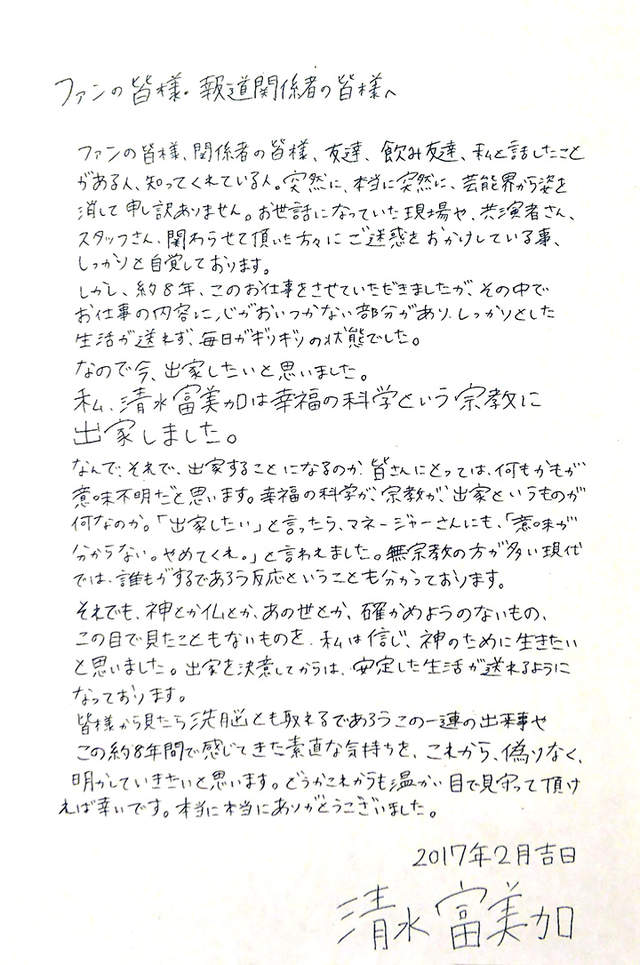 ファンの皆様・報道関係者の皆様へ
ファンの皆様、関係者の皆様、友達、飲み友達、私と話したこと
がある人、知ってくれている人。突然に、本当に突然に、芸能界から姿を
消して申し訳ありません。お世話になっていた現場や、共演者さん、
スタッフさん、関わらせて頂いた方々にご迷惑をおかけしている事、
しっかりと自覚しております。
しかし、約8年、このお仕事をさせていただきましたが、その中で
お仕事の内容に心がおいつかない部分があり、しっかりとした
生活が送れず、毎日がギリギリの状態でした。
なので今、出家したいと思いました。
私、清水富美加は幸福の科学という宗教に
出家しました。
なんで、それで、出家することになるのか、皆さんにとっては、何もかもが
意味不明だと思います。幸福の科学が、宗教が、出家というものが
何なのか。「出家したい」と言ったら、マネージャーさんにも、「意味が
分からない。やめてくれ。」と言われました。無宗教の方が多い現代
では、誰もがするであろう反応ということも分かっております。
それでも、神とか仏とか、あの世とか、確かめようのないもの、
この目で見たこともないものを、私は信じ、神のために生きたい
と思いました。出家を決意してからは、安定した生活が送れるように
なっております。
皆様から見たら洗脳とも取れるであろうこの一連の出来事や
この約8年間で感じてきた素直な気持ちを、これから、偽りなく、
明かしていきたいと思います。どうかこれからも温かい目で見守って頂け
えば幸いです。本当に本当にありがとうございました。
2017年2月吉日
清水富美加